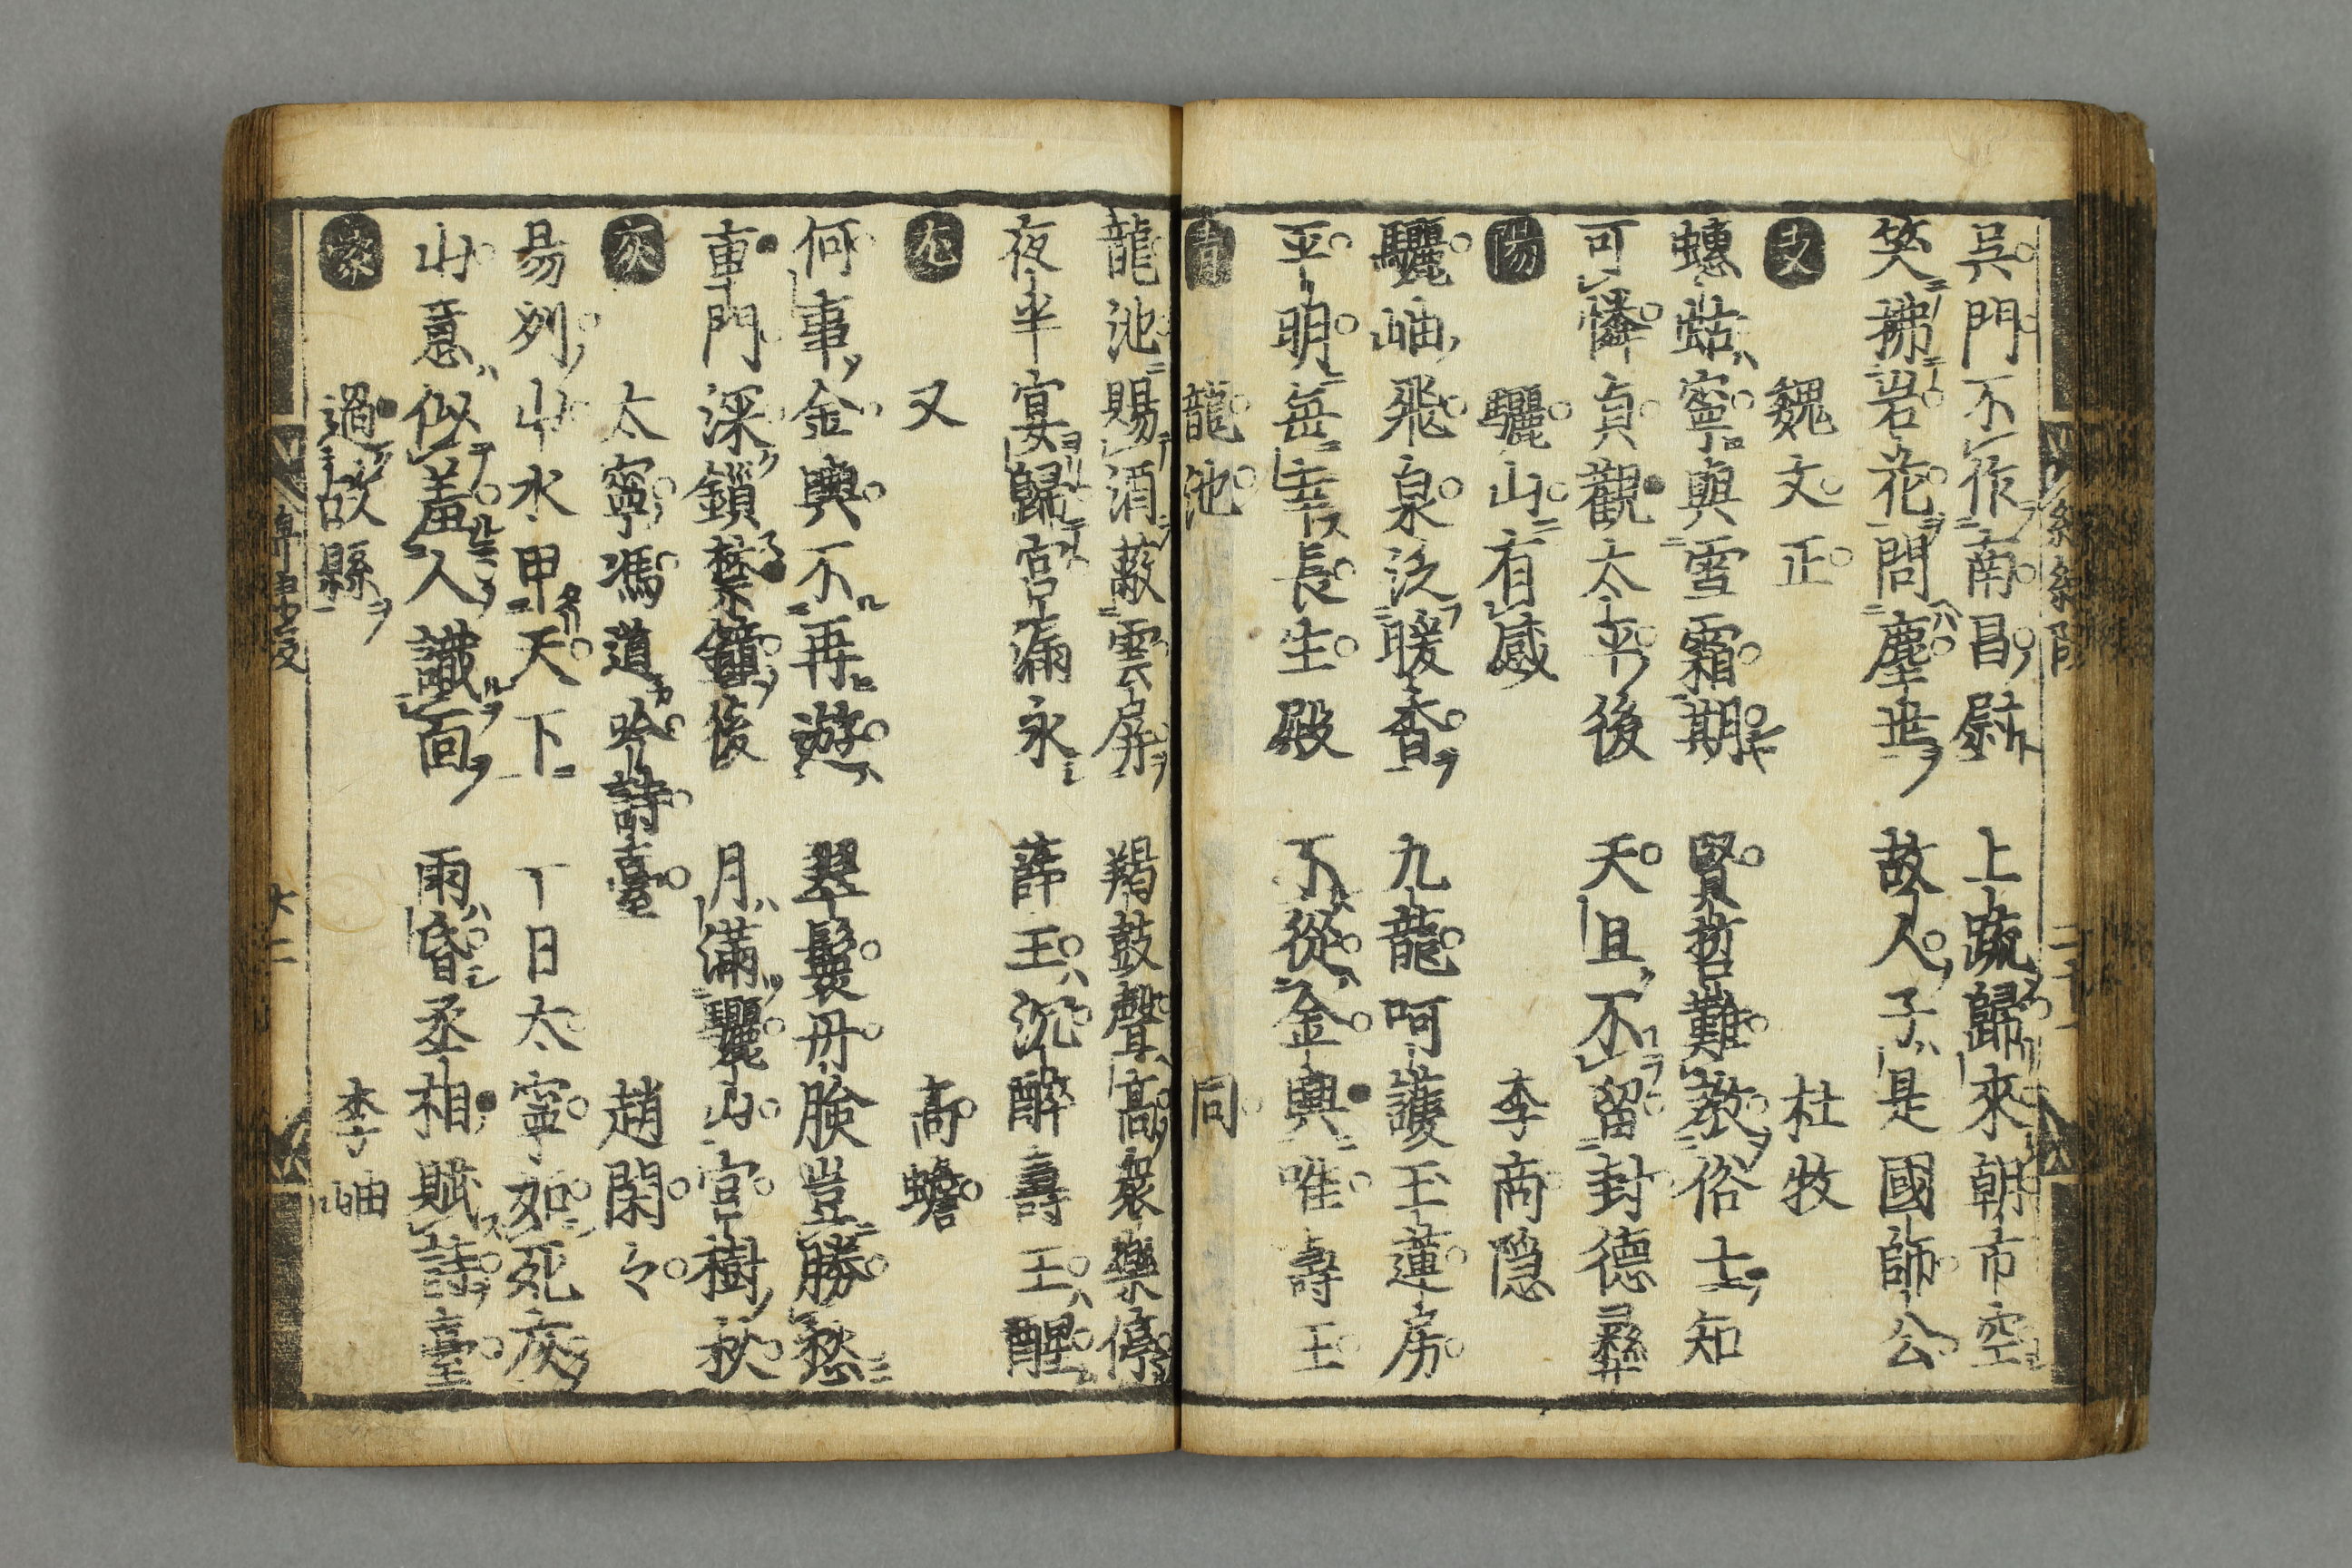 吴門不作南昌尉 上疏歸來朝市空
笑拂岩花問塵世 故人子是國師公
文 魏文正 杜牧
蟪蛄寧與雪霜期 賢哲難教俗士知
可憐貞觀太平後 天且不留封德彝
陽 驪山有感 李商隐
驪岫飛泉泛暖香 九龍呵護玉蓮房
平明每幸長生殿 不從金輿唯壽王
青 龍池 同
龍池賜酒蔽雲屏 羯鼓聲高衆樂停
夜半宴歸宮漏永 薛王沉醉壽王醒
尤 又 高蟾
何事金輿不再遊 翠鬟丹臉豈勝愁
重門深鎖禁鐘後 月滿驪山宮樹秋
灰 太寧馮道吟詩臺 趙閑々
易列山水甲天下 丁日太寧如死灰
山意似羞人識面 雨昏丞相賦詩臺
過故縣 李岫